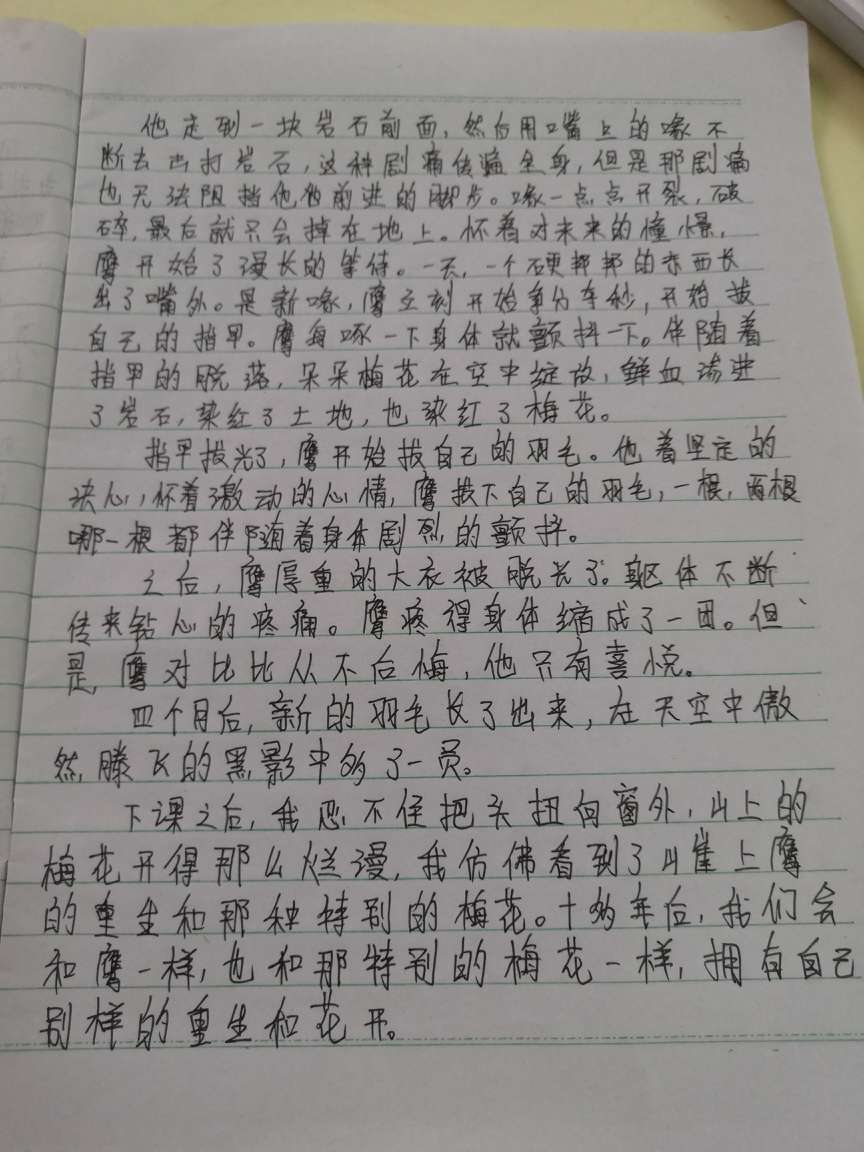 他走到一块岩石前面，然后用嘴上的喙不
断去击打岩石，这种剧痛传遍全身，但是那剧痛
也无法阻挡他的前进的脚步。喙一点点开裂，破
碎，最后就只会掉在地上。怀着对未来的憧憬，
鹰开始了漫长的等待。一天，一个硬邦邦的东西长
出了嘴外。是新喙，鹰立刻开始争分夺秒，开始拔
自己的指甲。鹰每啄一下身体就颤抖一下。伴随着
指甲的脱落，朵朵梅花在空中绽放，鲜血淌进
了岩石，染红了土地，也染红了梅花。
指甲拔光了，鹰开始拔自己的羽毛。他着坚定的
决心，怀着激动的心情，鹰拔下自己的羽毛，一根，两根
哪一根都伴随着身体剧烈的颤抖。
之后，鹰厚重的大衣被脱光了。躯体不断
传来钻心的疼痛。鹰疼得身体缩成了一团。但
是，鹰对比比从不后悔，他只有喜悦。
四个月后，新的羽毛长了出来，在天空中傲
然腾飞的黑影中多了一员。
下课之后，我忍不住把头扭向窗外，山上的
梅花开得那么烂漫，我仿佛看到了山崖上鹰
的重生和那种特别的梅花。十多年后，我们会
和鹰一样，也和那特别的梅花一样，拥有自己
别样的重生和花开。